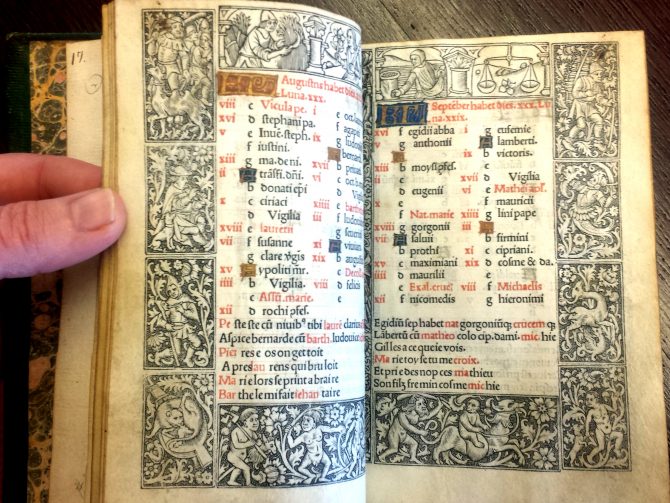 17.
Augustus habet dies
Luna. xxx.
viii c Vincula pe. i
xvi d stephani pa.
v e Inuē. steph.
f iustini
xiii g ma. de ni.
ii A trāsfi. dñi.
b donati epi
x c ciriaci
d Vigilia
xviii e laurētii
vii f susanne
g clare v̄gis
xv A ypoliti mr.
iiii b Vigilia.
c Assū. marie.
xii d rochi pfes.
e oct. lau
ix f agapi
g ludouic
A bernardi
xvii b priuati
vi c oct.
d Vigilia
xiiii e barth
iii f ludouic
g seuerini
xi A
xix b augustini
c Decoll
viii d felicis
e
Pe ste ste cū niuib⁹ tibi laurē clarius
Aspice bernarde cū barth. ludouice
Pier res e os on get toit
A pres lau rens qui bru loit
Ma rie lors se print a brai re
Bar the le mi fait iehan taire
September habet dies. xxx. Lu
na. xxix.
xvi f egidii abba
v g anthonii
A
xiii b moysi pfes.
ii c
d eugenii
x e
f Nat. marie
xviii g gorgonii
vii A saluii
b prothi
xv c maximiani
iiii d maurilii
e Exal. cruci
xii f nicomedis
i g eufemie
A lamberti.
ix b victoris.
c
xvii d Vigilia
vi e Mathei apl.
f mauricii
xiiii g lini pape
iii A
b firmini
xi c cipriani.
xix d cosme & da.
e
viii f Michaelis
g hieronimi
Egidiū sep habet nat gorgoniūq; crucem q;
Lābertū cū matheo colo cip. dami. mic. hie
Gil les a ce que ie vois.
Ma rie toy se tu me croix.
Et prie des nop ces ma thieu
Son filz fre min cosme mic hie